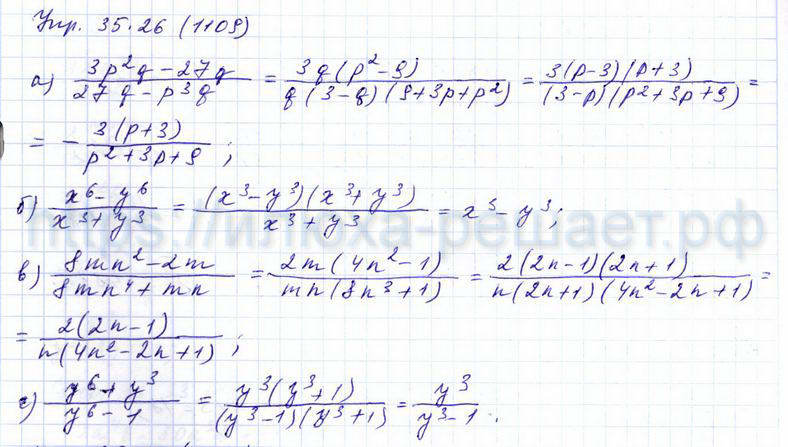 Упр. 35.26 (1109)
а) (3p²q − 27q)/(27q − p³q) = (3q(p² − 9))/(q(3 − q)(9 + 3p + p²)) = (3(p − 3)(p + 3))/((3 − p)(p² + 3p + 9)) =
= − (3(p + 3))/(p² + 3p + 9) ;
б) (x⁶ − y⁶)/(x³ + y³) = ((x³ − y³)(x³ + y³))/(x³ + y³) = x³ − y³ ;
https://илюха-решает.рф
в) (8mn² − 2m)/(8mn⁴ + mn) = (2m(4n² − 1))/(mn(8n³ + 1)) = (2(2n − 1)(2n + 1))/(n(2n + 1)(4n² − 2n + 1)) =
= (2(2n − 1))/(n(4n² − 2n + 1)) ;
г) (y⁶ + y³)/(y⁶ − 1) = (y³(y³ + 1))/((y³ − 1)(y³ + 1)) = y³/(y³ − 1) .